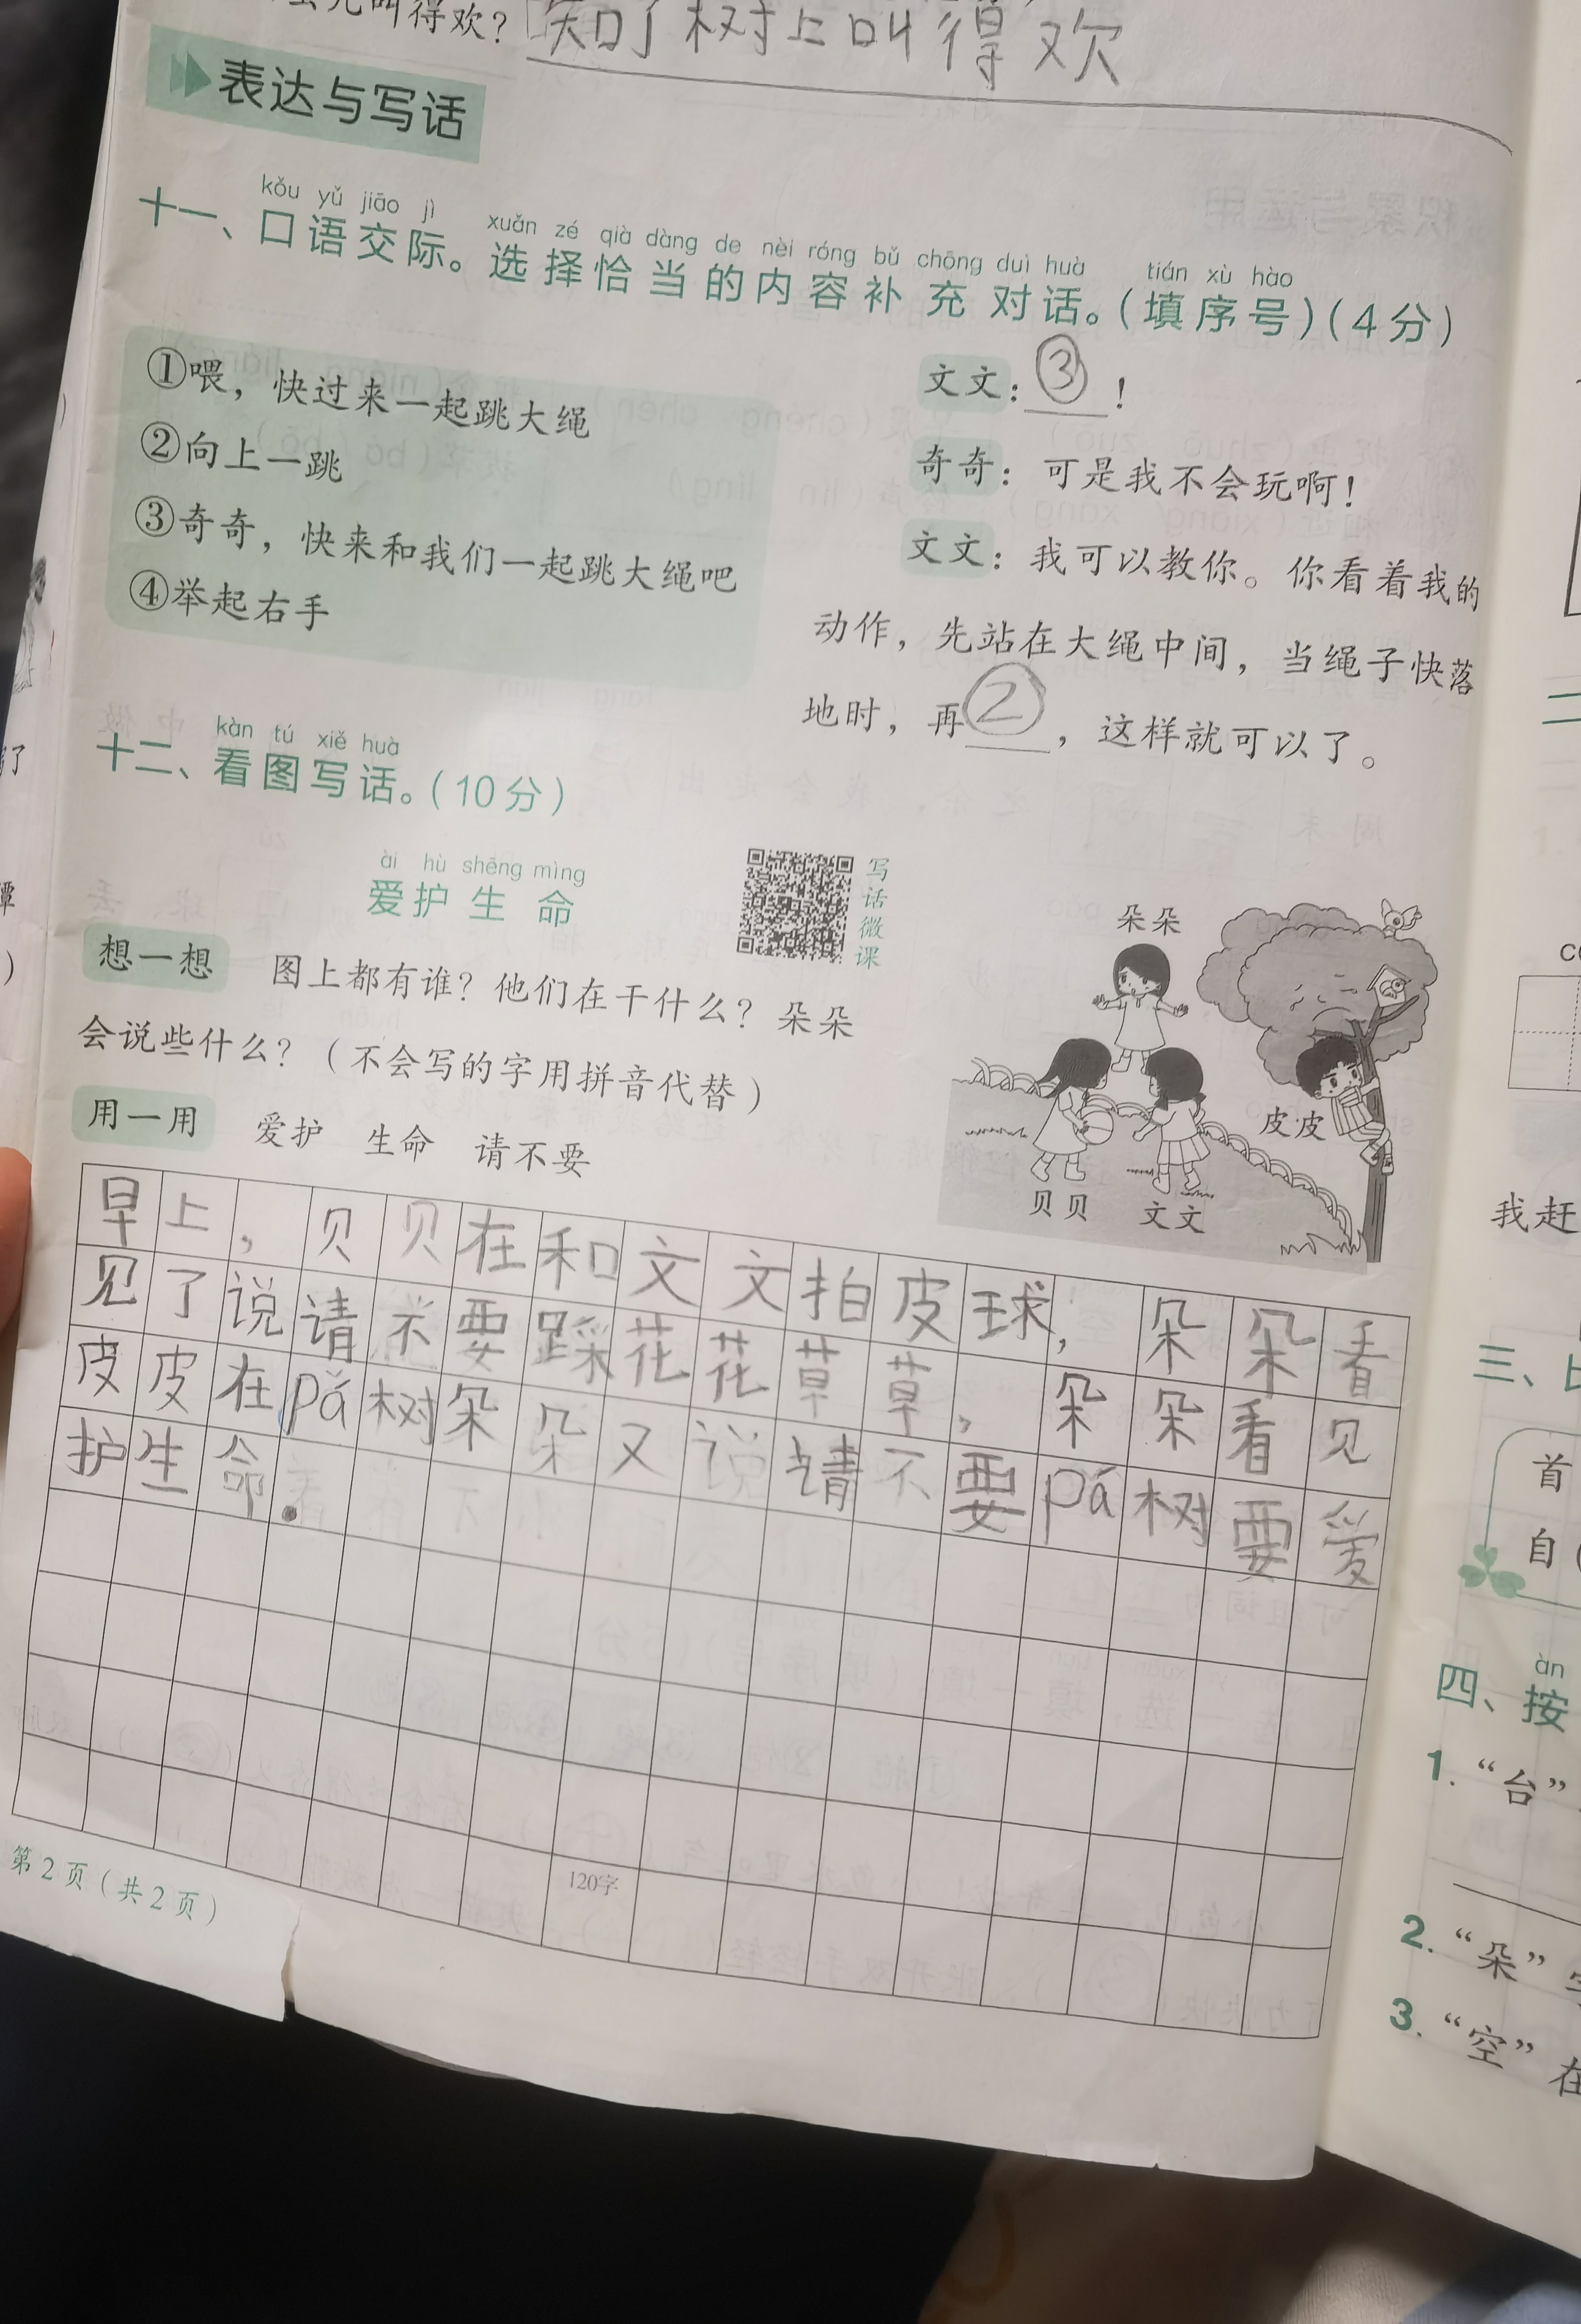 叫得欢？知了树上叫得欢
表达与写话
kǒu yǔ jiāo jì xuǎn zé qià dàng de nèi róng bǔ chōng duì huà tián xù hào
十一、口语交际。选择恰当的内容补充对话。（填序号）（4分）
①喂，快过来一起跳大绳
②向上一跳
③奇奇，快来和我们一起跳大绳吧
④举起右手
文文：③！
奇奇：可是我不会玩啊！
文文：我可以教你。你看着我的
动作，先站在大绳中间，当绳子快落
地时，再②，这样就可以了。
kàn tú xiě huà
十二、看图写话。（10分）
ài hù shēng mìng
爱护生命
写话微课
想一想 图上都有谁？他们在干什么？朵朵
会说些什么？（不会写的字用拼音代替）
用一用 爱护 生命 请不要
朵朵
皮皮
贝贝
文文
早上，贝贝在和文文拍皮球，朵朵看
见了说请不要踩花花草草，朵朵看见
皮皮在pá树朵朵又说请不要pá树要爱
护生命.
120字
第2页（共2页）
我赶
三、
首
自
àn
四、按
1.“台”
2.“朵”
3.“空”在